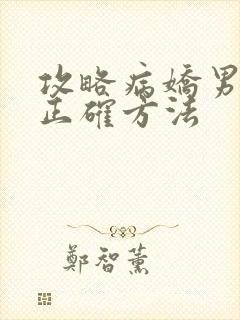 攻略病嬌男
正確方法
鄭智薰